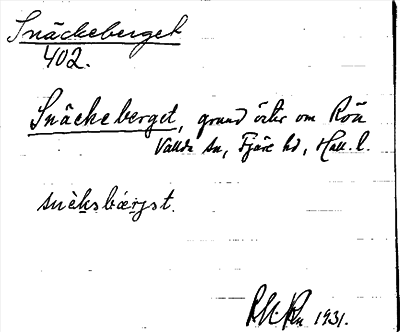 Snäckeberget
402.
Snäckeberget, grund öster om Rön
Vallda sn, Fjäre hd, Hall. l.
snèksbærjst.
1931.